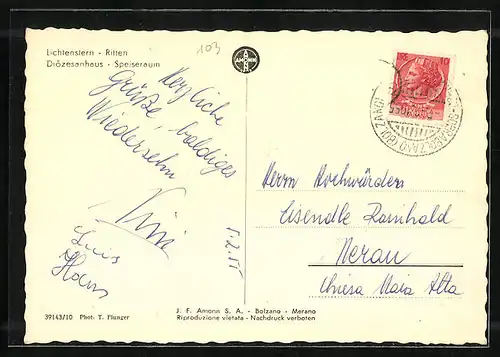 Lichtenstern - Ritten
Diözesanhaus - Speiseraum
103
AMONN
Herzliche
Grüße, baldiges
Wiedersehn
Luis
Hans
1.2.55
Herrn Hochwürden
Eisendle Rainhald
Meran
Chiesa Maia Alta
J. F. Amonn S. A. - Bolzano - Merano
Riproduzione vietata - Nachdruck verboten
39143/10 Phot. T. Flunger